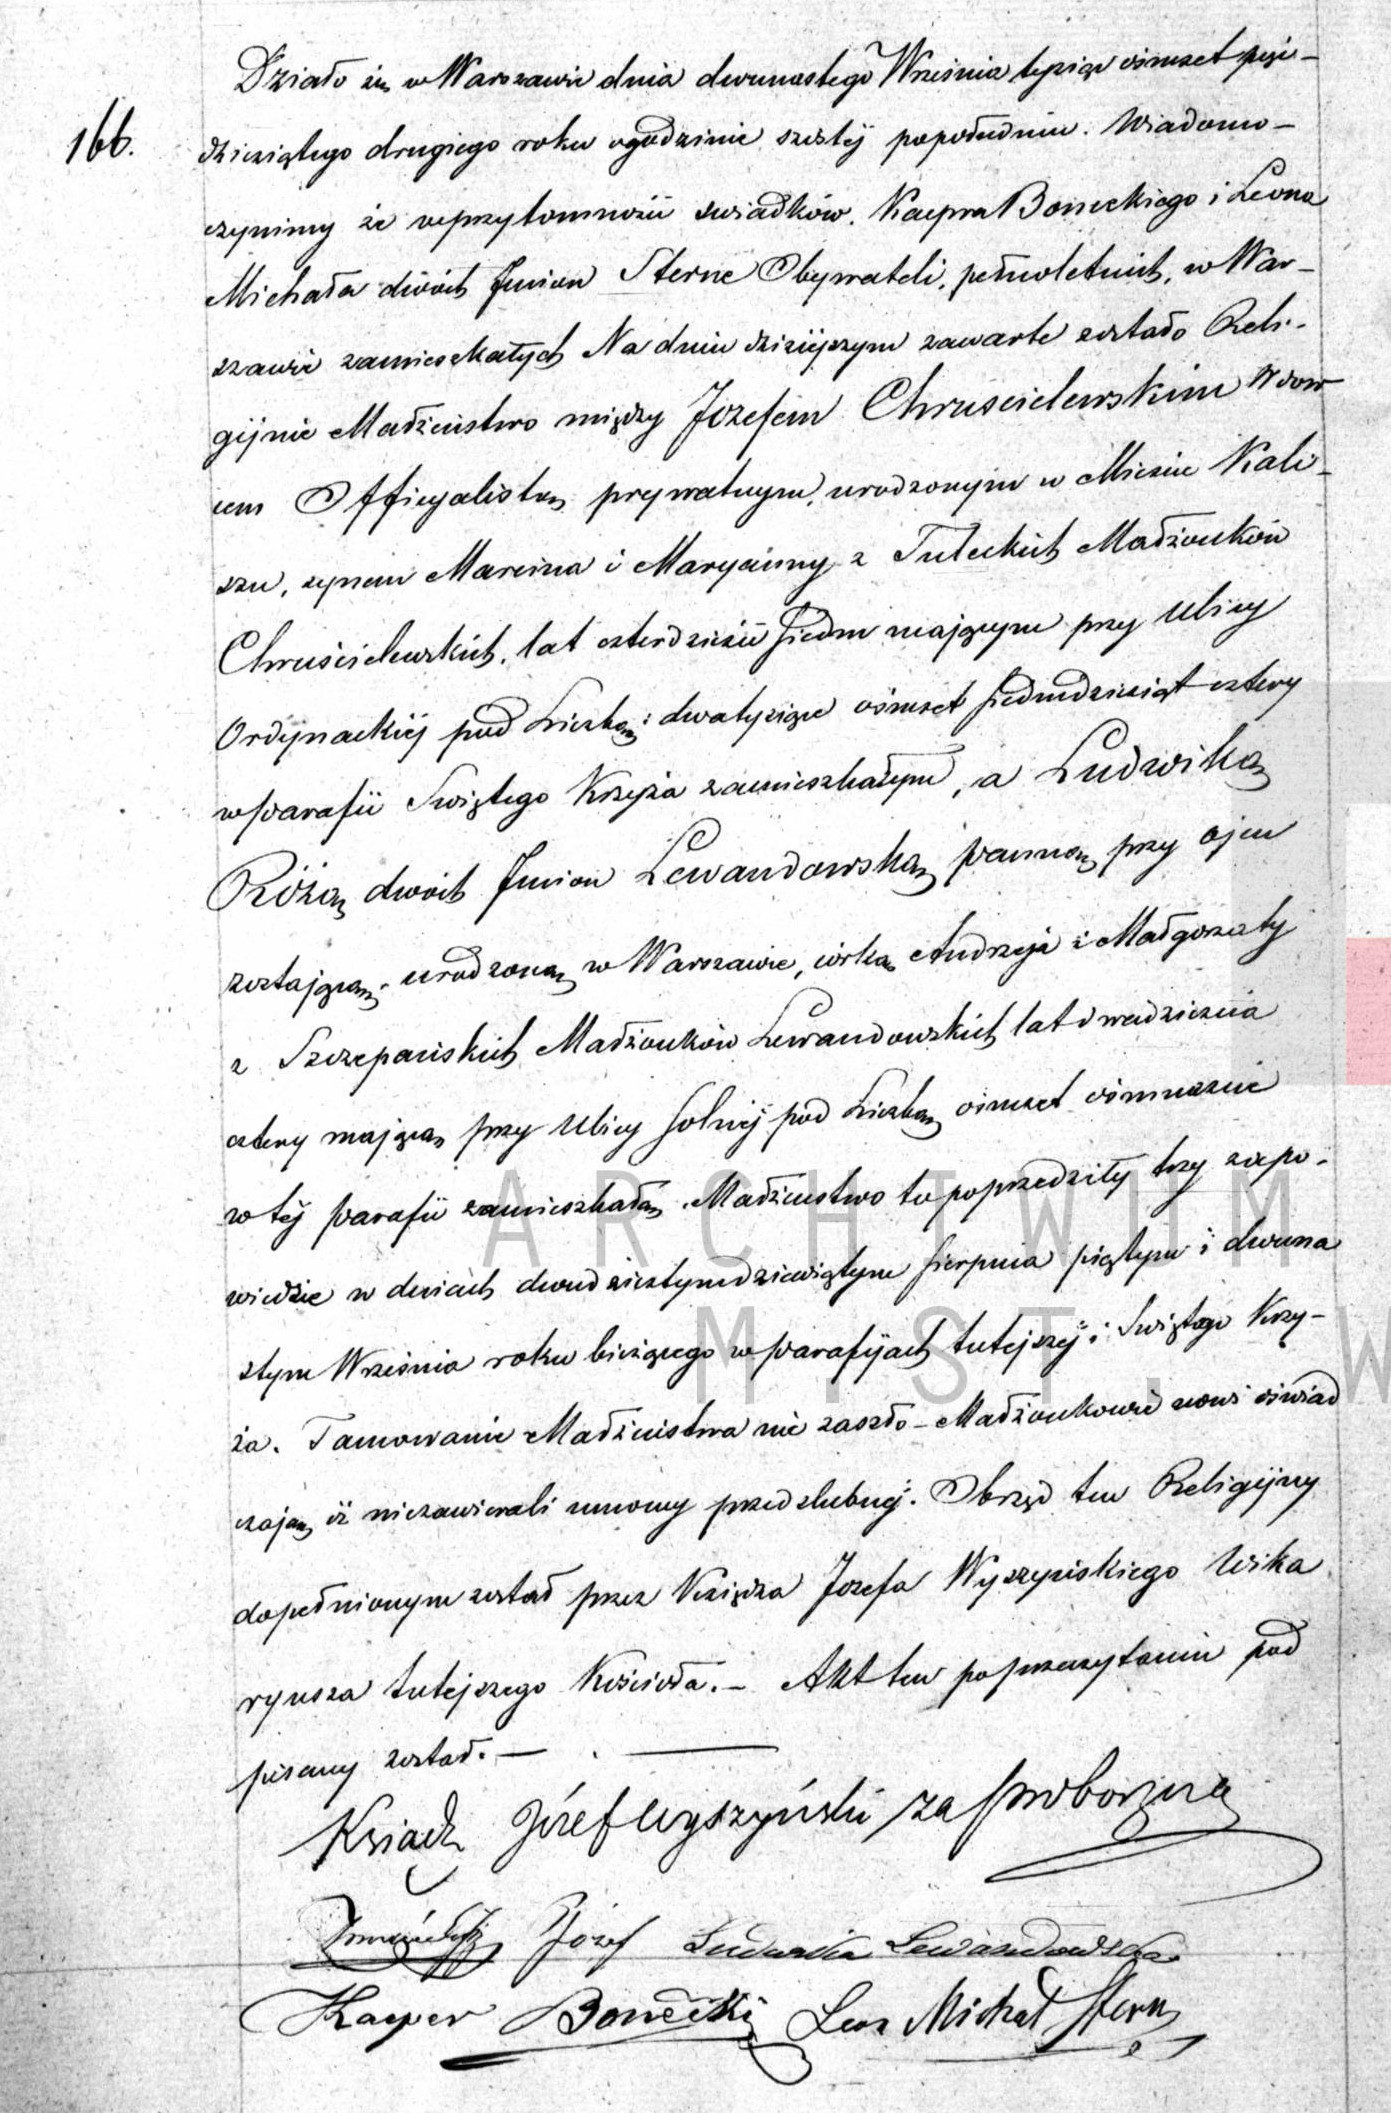 Działo się w Warszawie dnia dwunastego Września tysiąc ośmset pięć-
166.
dziesiątego drugiego roku o godzinie szóstéj popołudniu. Wiadomo-
czynimy że w przytomności świadków. Kacpra Boneckiego i Leona
Michała dwóch Imion Sterne Obywateli, pełnoletnich, w War-
szawie zamieszkałych Na dniu dzisiejszym zawarte zostało Reli-
gijnie Małżeństwo między Jozefem Chruscielewskim Wdow
cem Officyalistą prywatnym, urodzonym w Mieście Kali-
szu, synem Marcina i Maryanny z Tuleckich Małżonków
Chruścielewskich, lat czterdzieści siedm mającym przy Ulicy
Ordynackiéj pod Liczbą: dwa tysiące ośmset siedmdziesiąt cztery
w parafii Świętego Krzyża zamieszkałym, a Ludwiką
Różą dwóch Imion Lewandowską panną przy ojcu
zostającą, urodzoną w Warszawie, córką Andrzeja i Małgorzaty
z Szczepańskich Małżonków Lewandowskich lat dwadzieścia
cztery mającą przy Ulicy Solnéj pod Liczbą ośmset ośmnaście
w téj parafii zamieszkałą. Małżeństwo to poprzedziły trzy zapo-
wiedzie w dniach dwudziestym dziewiątym Sierpnia piątym i dwuna
stym Września roku bieżącego w parafijach tutejszéj i Świętego Krzy-
ża. Tamowanie Małżeństwa nie zaszło - Małżonkowie nowi oświad
czają iż niezawierali umowy przedślubnéj. Obrzęd ten Religijny
dopełnionym został przez Księdza Jozefa Wyszyńskiego Wika
ryusza tutejszego Kościoła. - Akt ten po przeczytaniu pod
pisany został. -
Ksiądz Józef Wyszyński za proboszcza
Józef Ludwika Lewandowska
Kacper Bonecki Leon Michał Stern
ARCHIWUM
M. ST. W